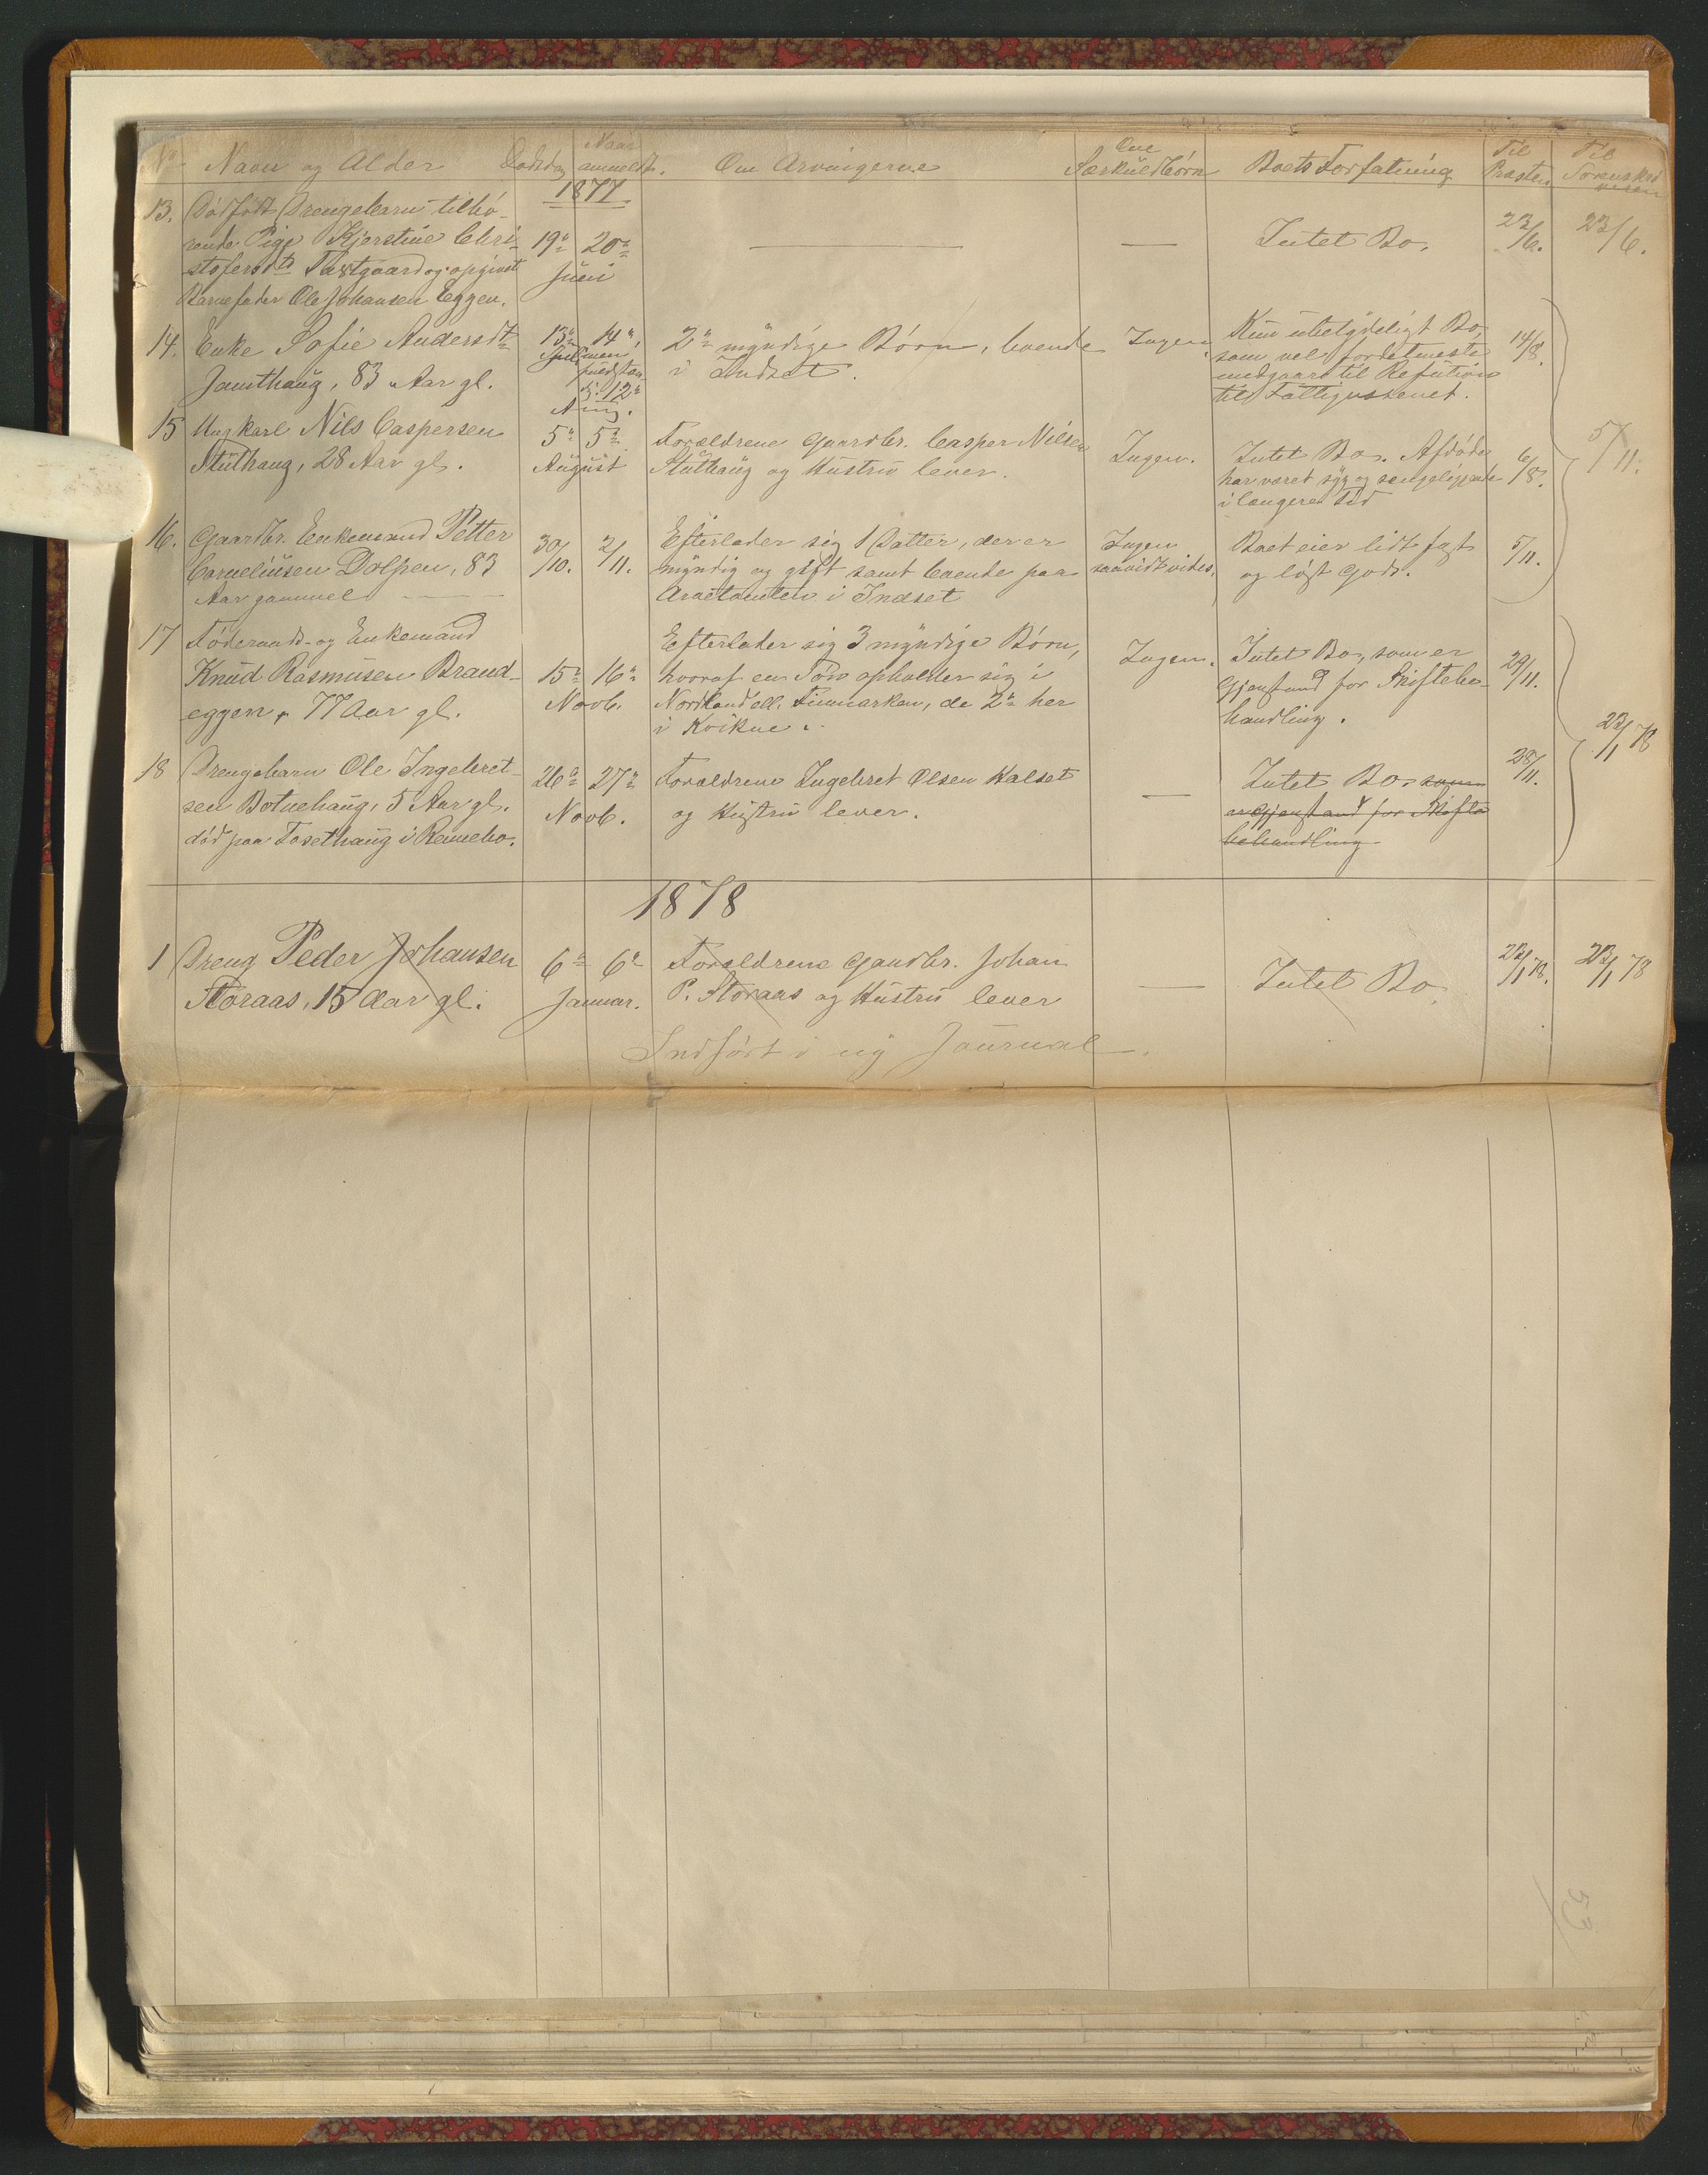 No Navn og Alder Dødsdag Naar anmeldt. Om Arvingerne Om Særkuldbørn Boets Forfatning Til Præsten Til Sorenskriveren
1877
13. Dødfødt Drengebarn tilhø-
rende Pige Kjerstine Chri-
stofersdtr. og opgivet
Barnefader Ole Johansen Eggen.
19de 20de
Juni
Intet Bo.
23/6.
23/6.
14. Enke Sofie Andersdtr
Jamthaug, 83 Aar gl.
13de 14de,
Juli men
12te
Aug.
2de myndige Børn, boende
i Indset.
Ingen
Kun ubetydeligt Bo,
som vel fordetmeste
medgaar til Refution
til Fattigvæsenet.
14/8.
15 Ungkarl Nils Caspersen
Stuthaug, 28 Aar gl.
5te 5te
August
Forældrene Gaardbr. Casper Nilsen
Stuthaug og Hustru lever.
Ingen.
Intet Bo. Afdøde
har været syg og sengeliggende
i længere Tid
6/8.
5/11.
16. Gaardbr. Enkemand Petter
Corneliusen Dolpen, 83
Aar gammel
30/10. 2/11.
Efterlader sig 1 Datter, der er
myndig og gift samt boende paa
i Indset
Ingen
saavidt vides.
Boet eier lidt fast
og løst Gods.
5/11.
17 Føderaads- og Enkemand
Knud Rasmusen Brand-
eggen, 77 Aar gl.
15de 16de
Novb.
Efterlader sig 3 myndige Børn,
hvoraf en Søn opholder sig i
Nordland ell. Finmarken, de 2de her
i Kvikne.
Ingen.
Intet Bo, som er
Gjenstand for Skiftebe-
handling.
29/11.
23/1 78
18 Drengebarn Ole Ingebret-
sen Botnehaug, 5 Aar gl.
død paa Tosethaug i Rennebo.
26de 27de
Novb.
Forældrene Ingebret Olsen Halset
og Hustru lever.
Intet Bo som
er Gjenstand for Skifte
behandling
28/11.
1878
1 Dreng Peder Johansen
Storaas, 15 Aar gl.
6te 6te
Januar.
Forældrene Gaardbr. Johan
P. Storaas og Hustru lever
Intet Bo.
23/1 78.
23/1 78
Indført i ny Journal.
53